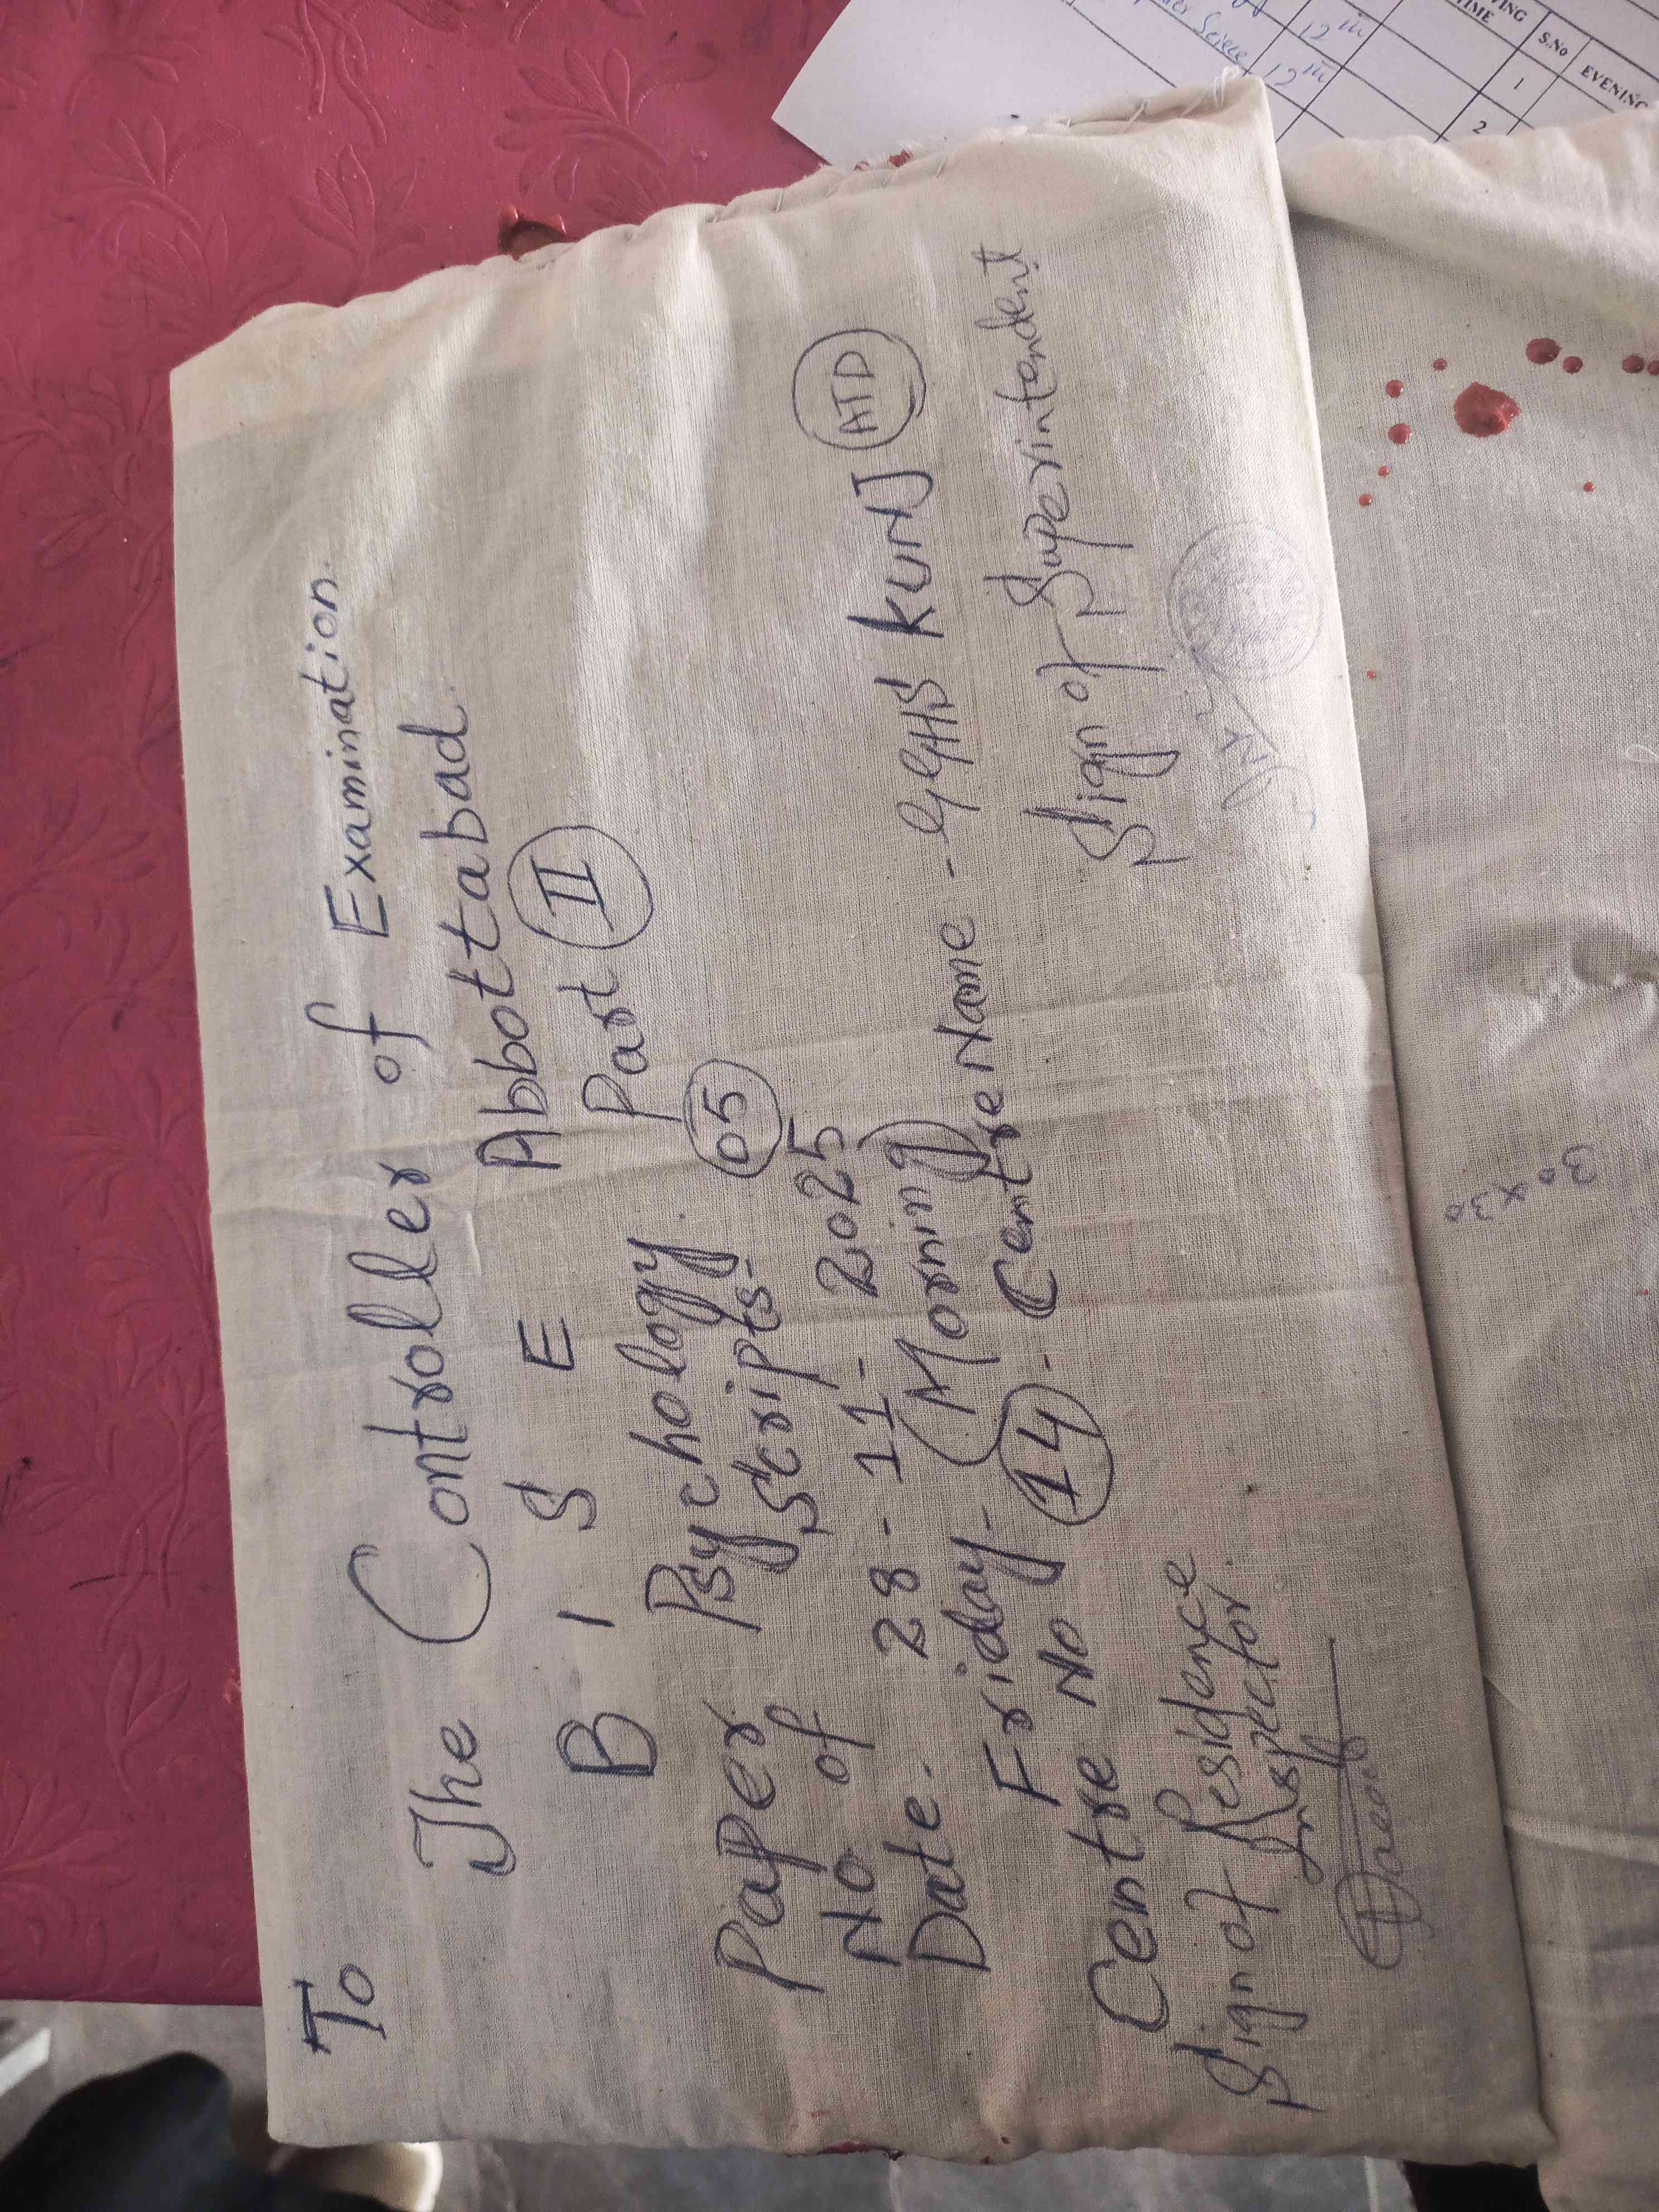 To
The Controller of Examination.
B I S E Abbottabad.
Paper Psychology Part II
No of Scripts - 05
Date. 28 - 11 - 2025
Friday - (Morning)
Centre No 14 - Centre Name - GGHS KUNJ ATD
Sign of Residence Inspector
Sign of Superintendent
30 x 30
TIME
S.No
EVENING
1
2
12th
12th